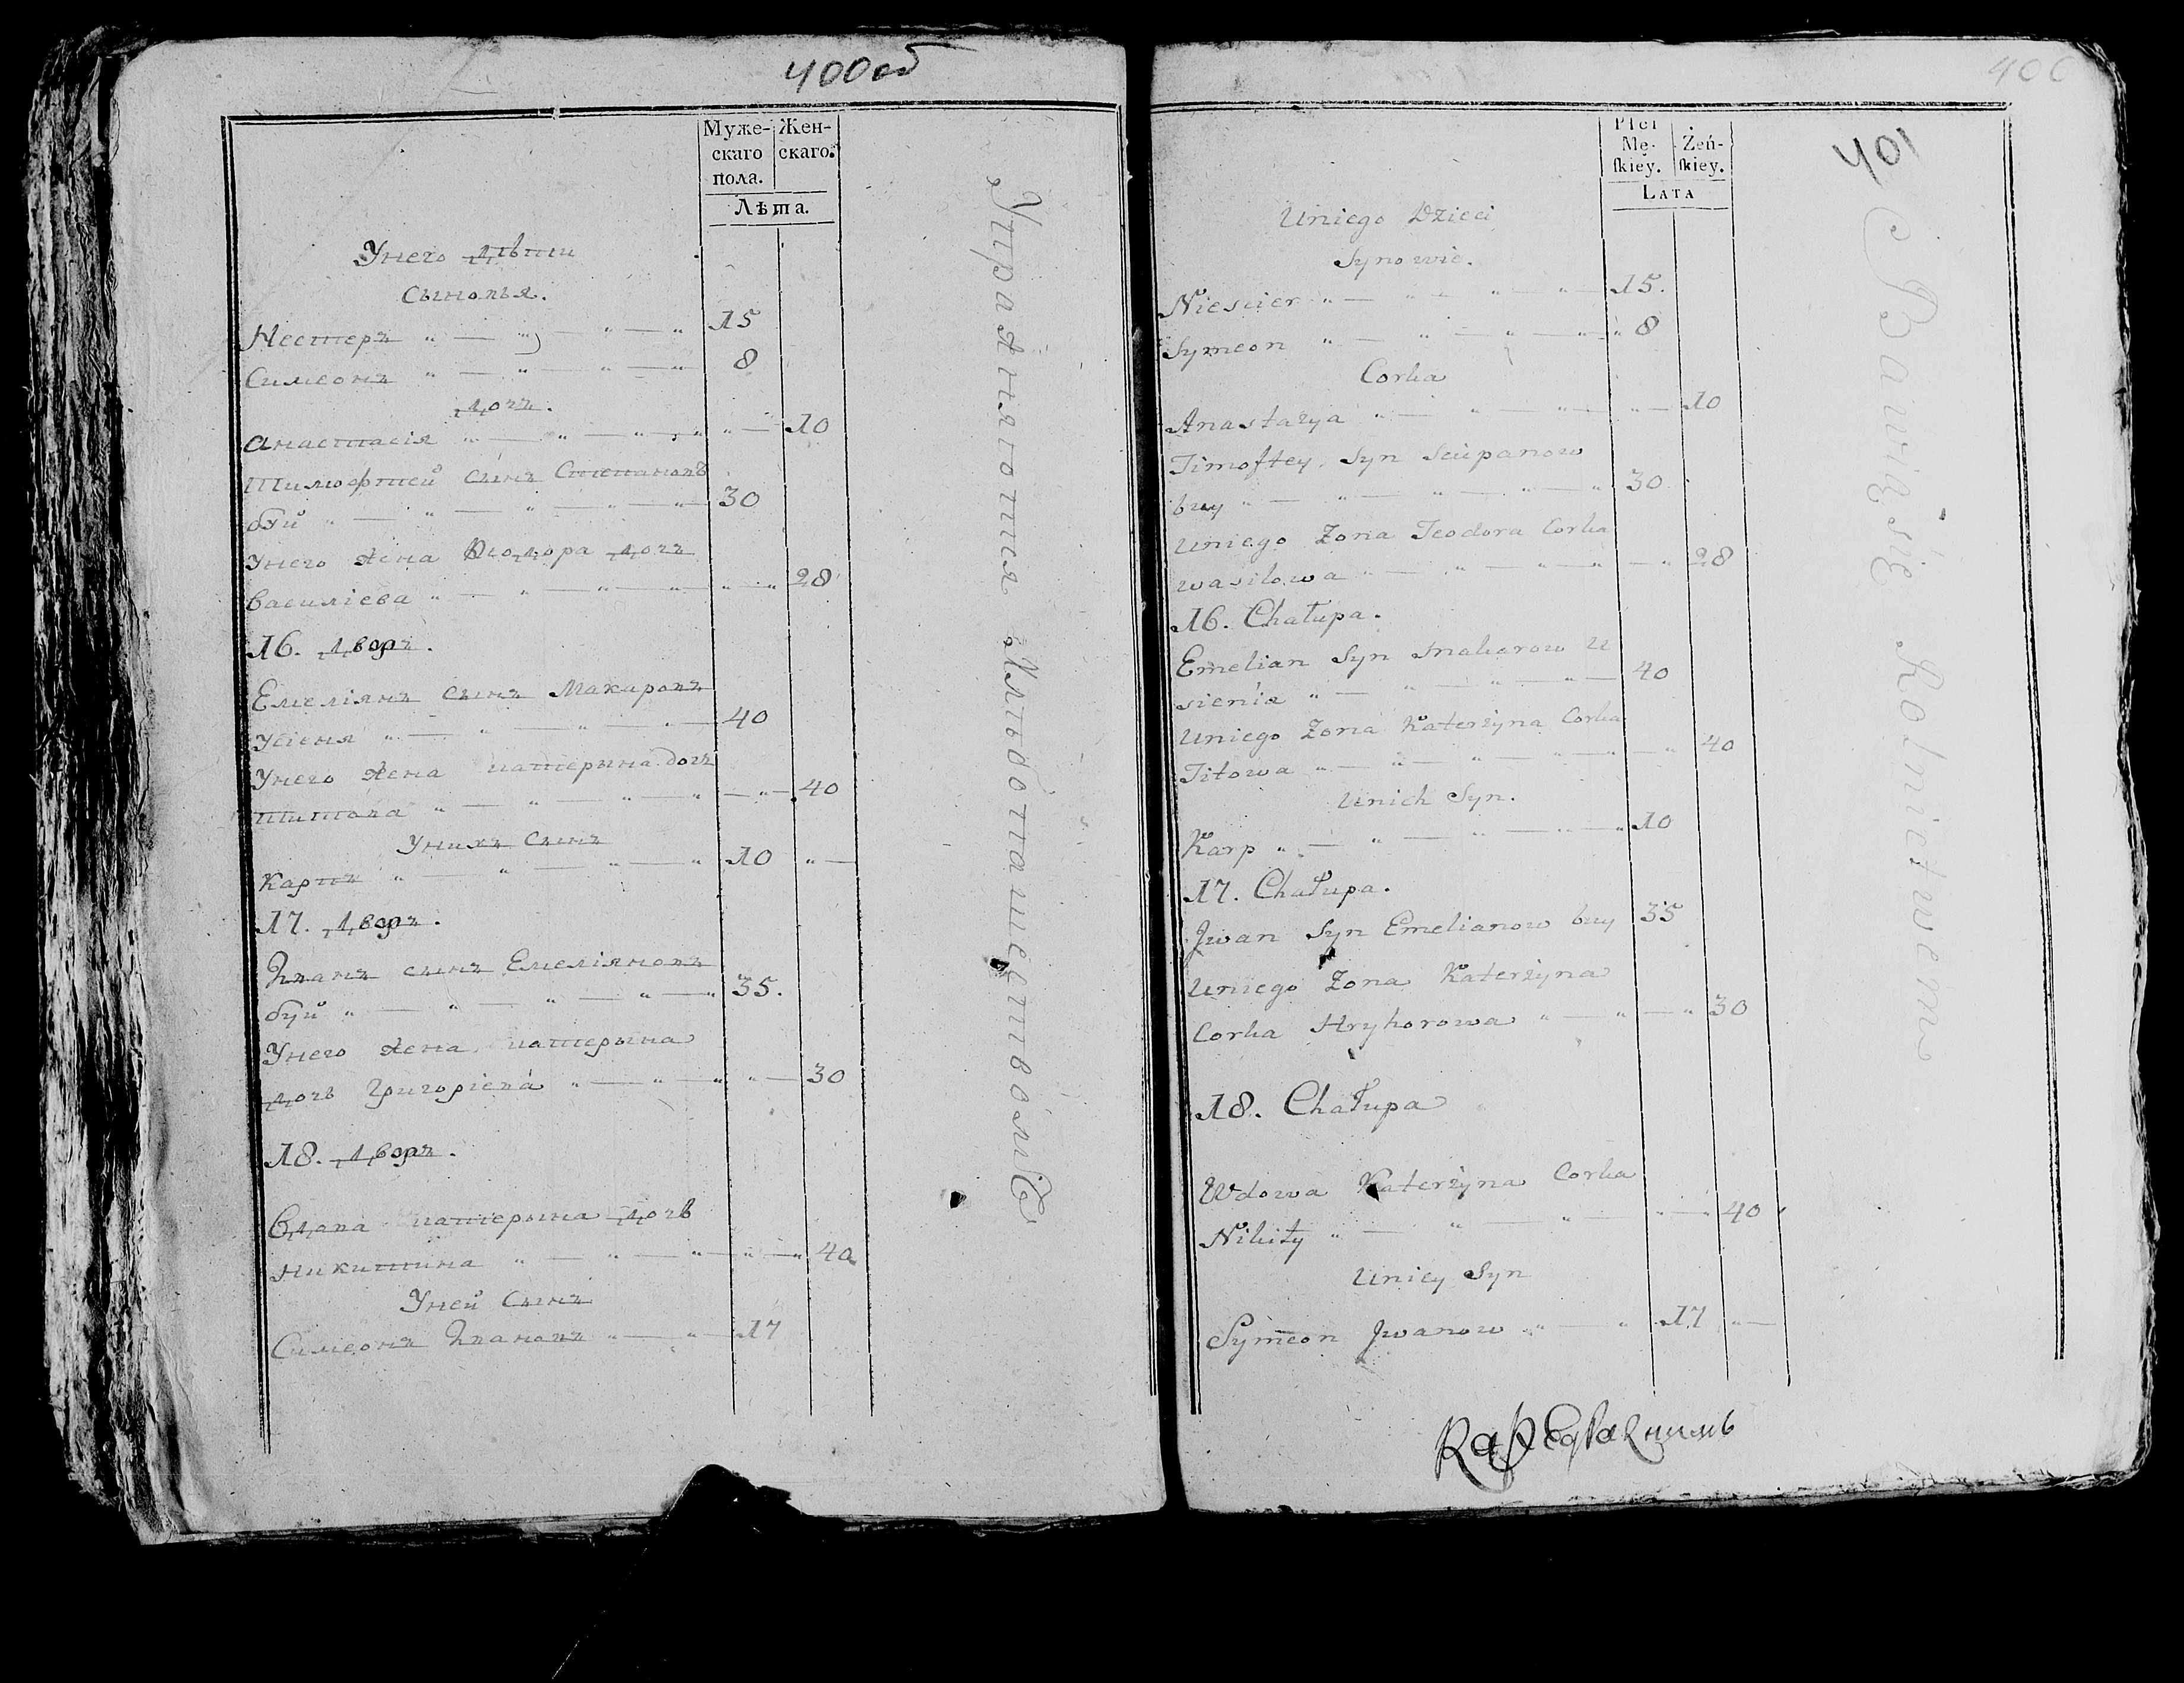 400об
Муже- Жен-
скаго скаго.
пола.
Лѣта.
Унего дѣти
Сыновья.
Нестеръ 15
Симеонъ 8
дочъ.
Анастасія 10
Тимофтей сынъ Степановъ
буй 30
Унего жена Феодора дочъ
Василіева 28
16. дворъ.
Емеліянъ сынъ Макаровъ
Усіеня 40
Унего жена катерына дочъ
титова 40
Унихъ сынъ
Карпъ 10
17. дворъ.
Иванъ сынъ Емеліяновъ
буй 35.
Унего жена катерына
дочь Григоріева 30
18. дворъ.
Вдова катерына дочь
никитина 40
Уней сынъ
Симеонъ Ивановъ 17
Упражняются хлѣбопашествомъ
406
401
Płci
Mę- Żeń-
skiey. skiey.
LATA
Uniego Dzieci
Synowie.
Niescier 15.
Symeon 8
Corka
Anastazya 10
Timoftey Syn Sciepanow
buy 30
Uniego Zona Teodora Corka
wasilowa 28
16. Chałupa.
Emelian Syn Makarow U
sienia 40
Uniego Zona Katerżyna Corka
Titowa 40
Unich Syn.
Karp 10
17. Chałupa.
Jwan Syn Emelianow buy 35
Uniego Zona Katerżyna
Corka Hryhorowa 30
18. Chałupa
Wdowa Katerżyna Corka
Nikity 40
Uniey Syn
Symeon Jwanow 17
Bawią się Rolnictwem